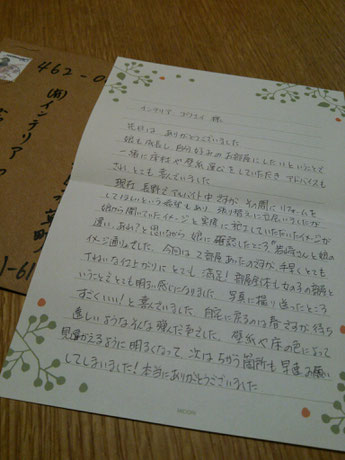 462-0
(有)インテリア
インテリア コクブニイ 様
先日は、ありがとうございました
娘も成長し、自分好みのお部屋にしたいということで
一緒に床材や壁紙選びをしていただき アドバイスも
され、とても喜んでいました
現在 長野でアルバイト中ですが、その間にリフォームを
してほしいという希望もあり、張り替えに立会いましたが
娘から聞いていたイメージと実際に施工していただいたイメージが
違い、あれ?と思いながら 娘に確認したところ
イメージ通りでした。今回は2部屋あったのですが、手早くとても
ていねいな仕上がりに とても満足!部屋自体も女の子の部屋と
いうことでとても明るい感じになりました 写真に撮り送ったところ
すごくいい!と喜んでいました。自宅に戻るのは春ですが待ち
遠しいようなそんな弾んだ声でした。壁紙や床の色によって
見違えるように明るくなって、次はちがう箇所も早速お願い
してしまいました!本当にありがとうございました